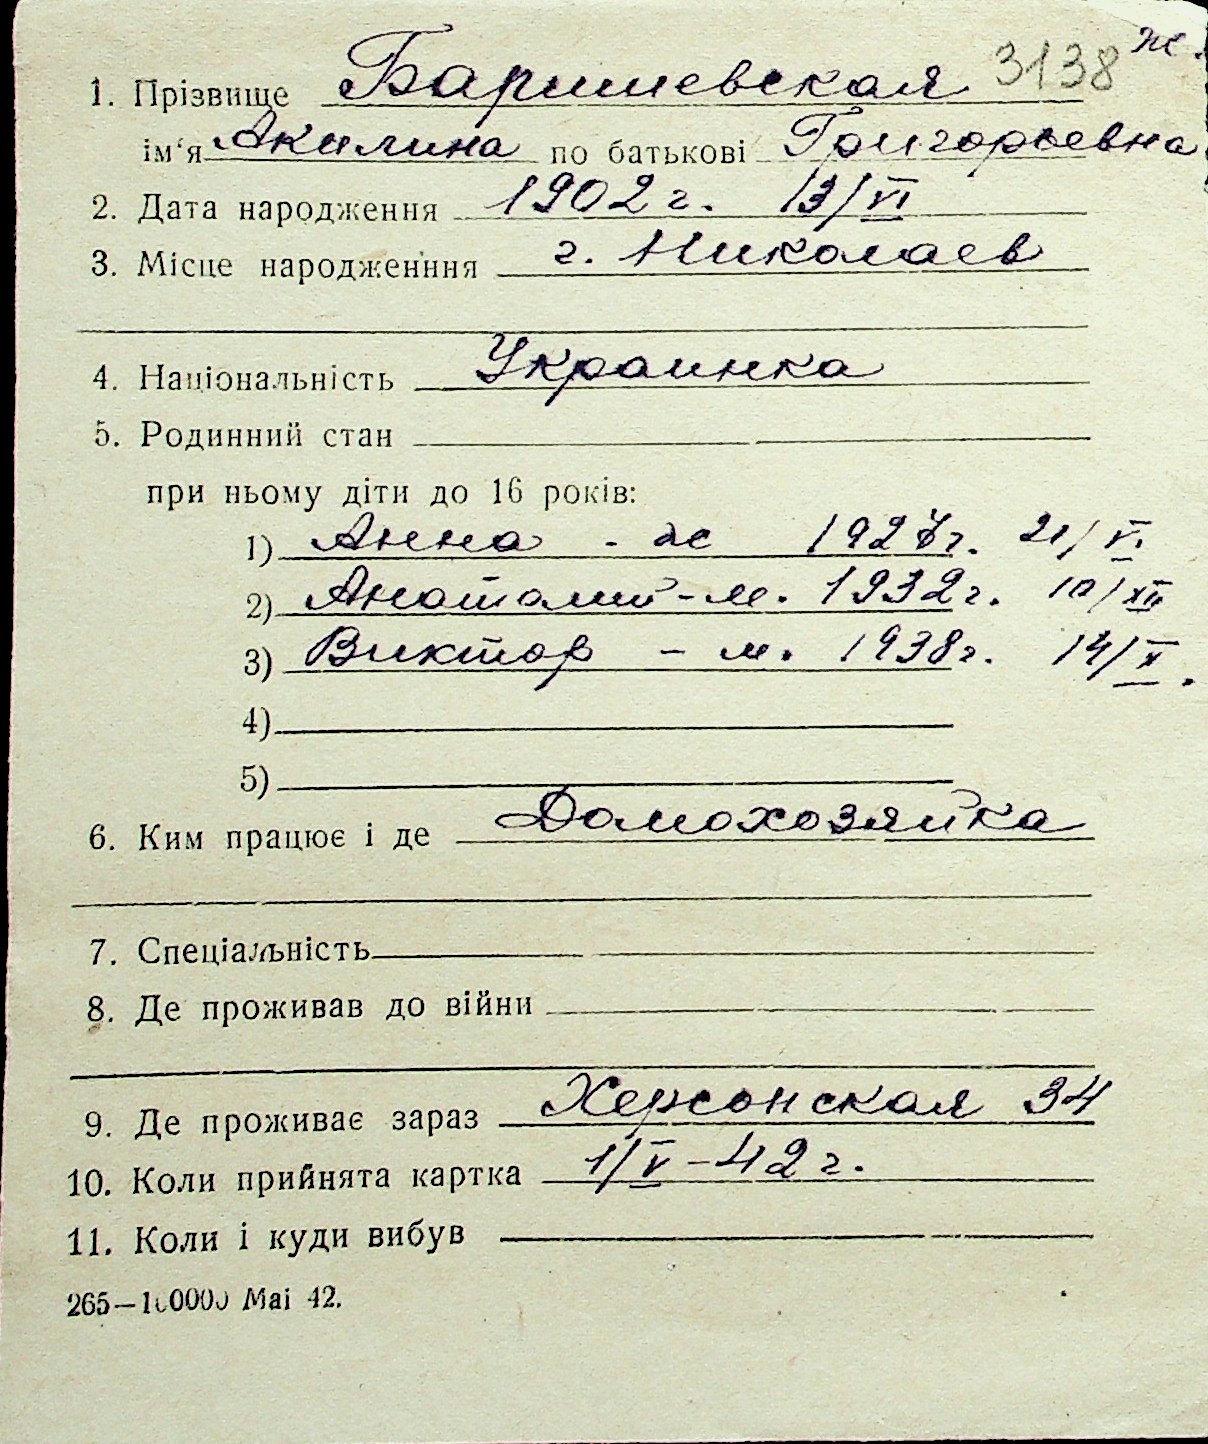 ж.
1. Прізвище Баришевская 3138
ім'я Акилина по батькові Григорьевна
2. Дата народження 1902 г. 13/VI
3. Місце народженння г. Николаев
4. Національність Украинка
5. Родинний стан
при ньому діти до 16 років:
1) Анна - ж 1927 г. 21/VI
2) Анатолий - м. 1932 г. 10/XII
3) Виктор - м. 1938 г. 14/X.
4)
5)
6. Ким працює і де Домохозяйка
7. Спеціальність
8. Де проживав до війни
9. Де проживає зараз Херсонская 34
10. Коли прийнята картка 1/V - 42 г.
11. Коли і куди вибув
265—100000 Маі 42.